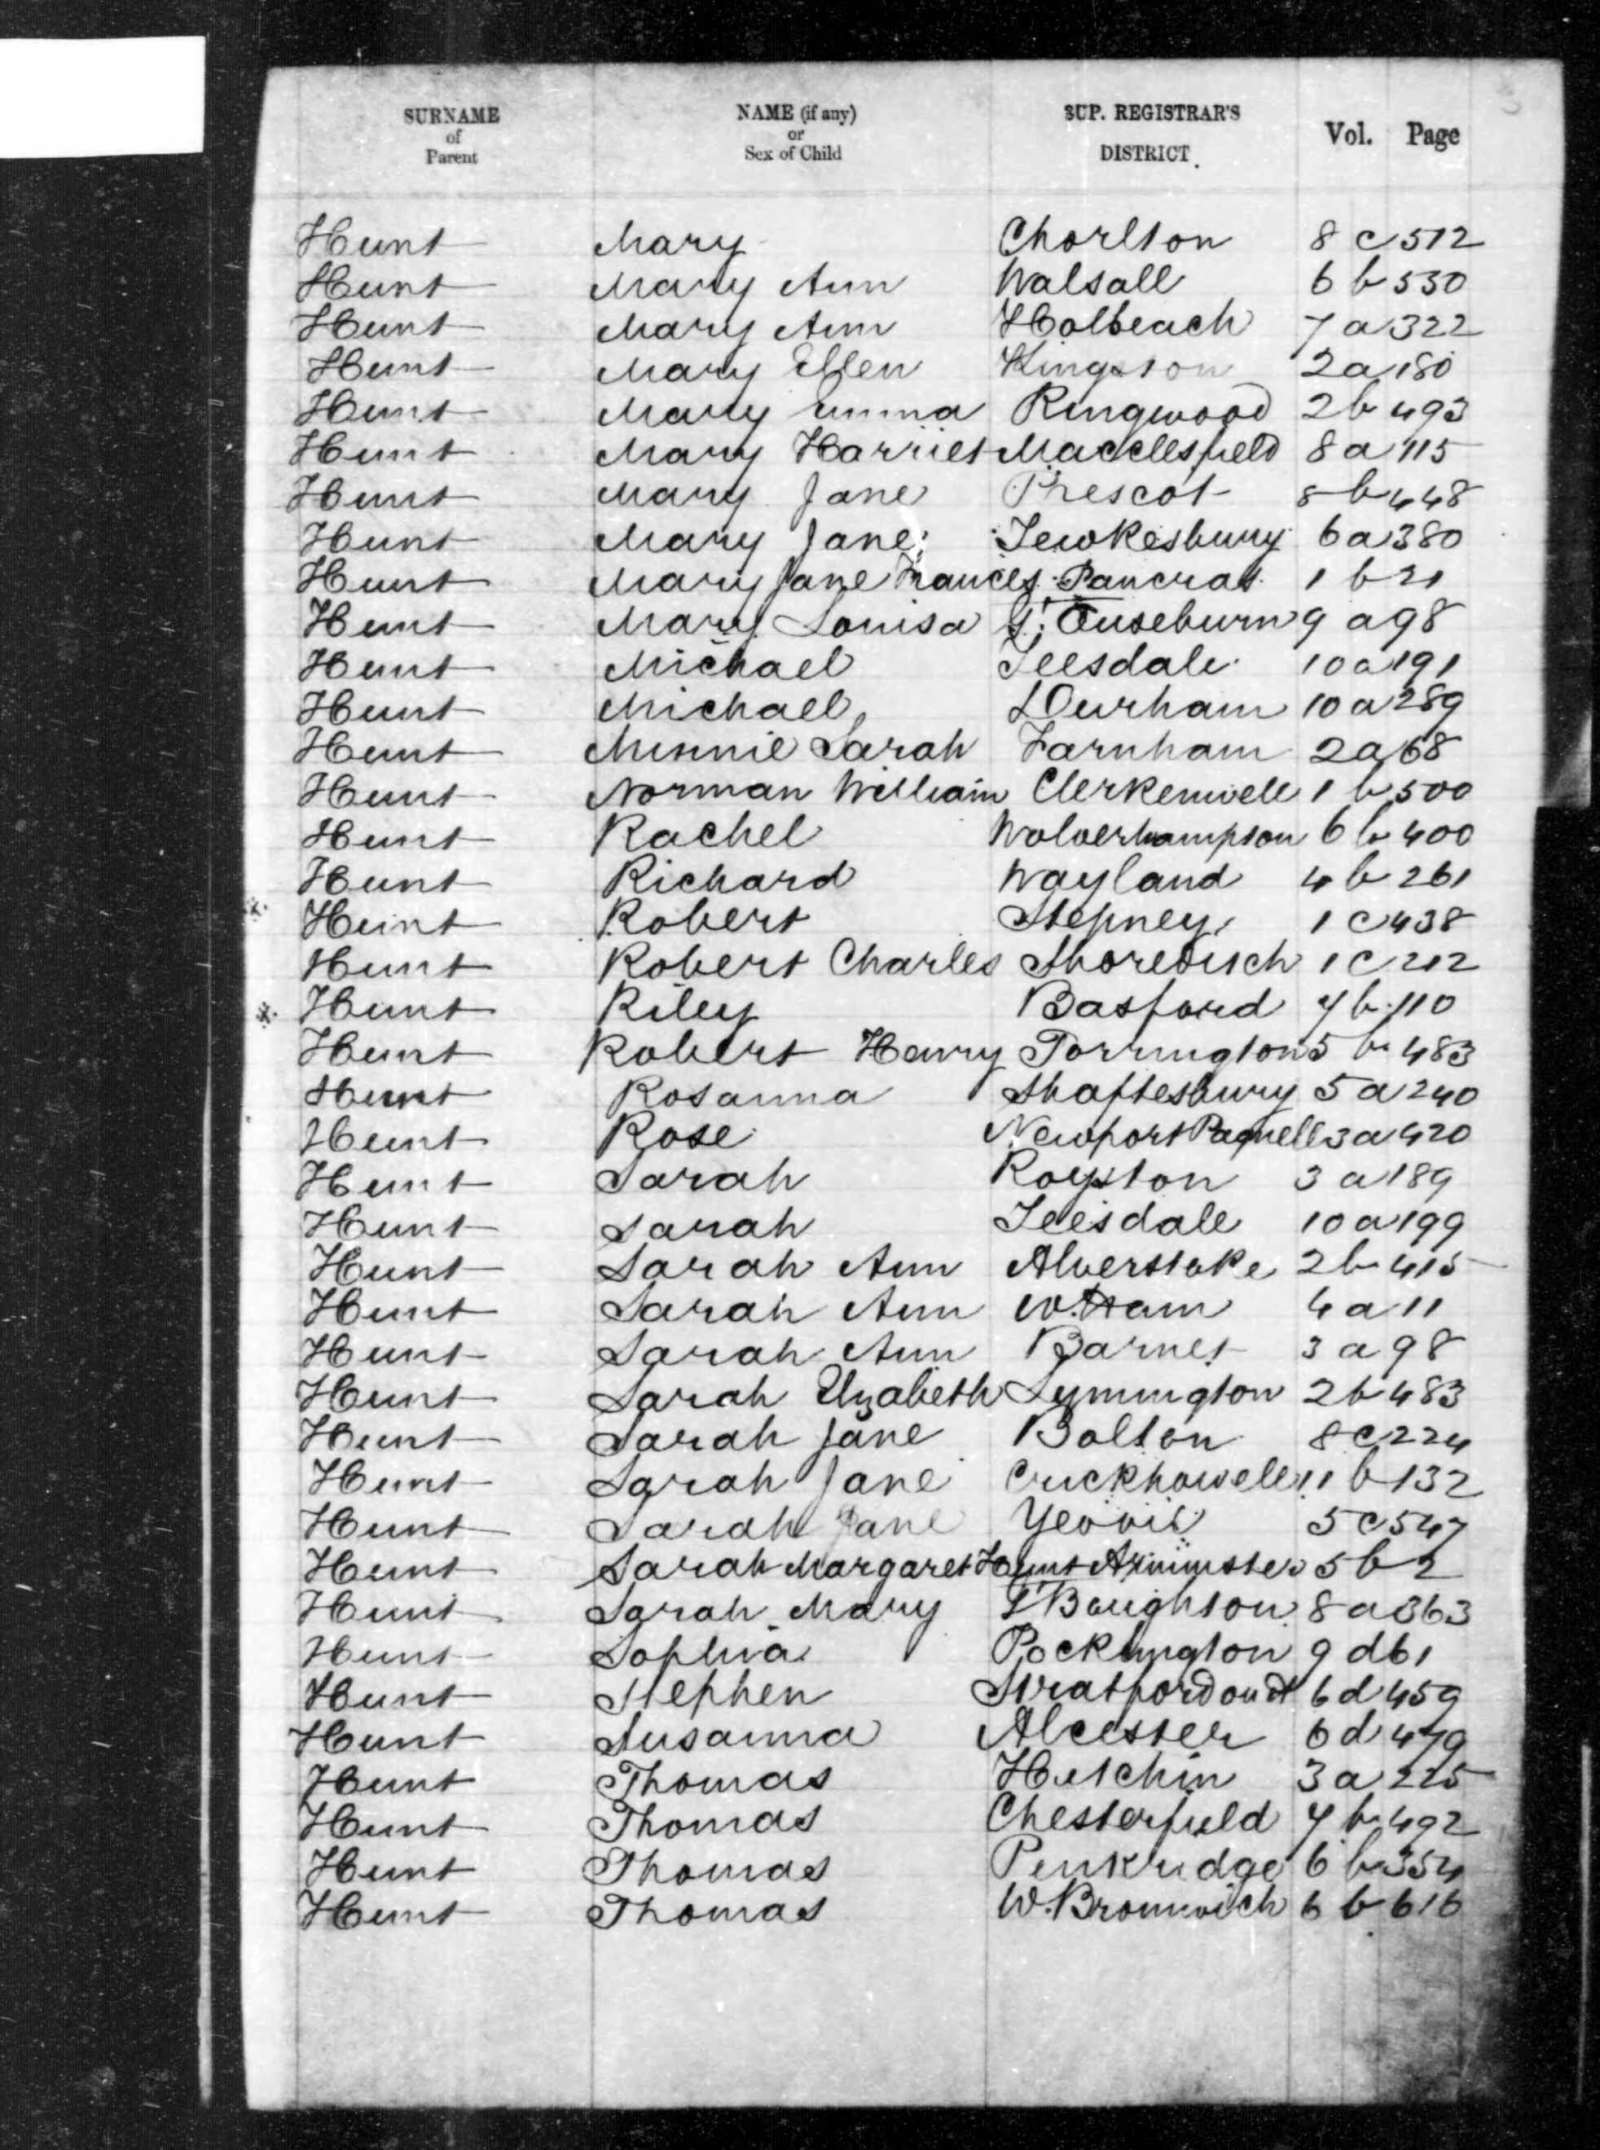 SURNAME of Parent NAME (if any) or Sex of Child SUP. REGISTRAR'S DISTRICT. Vol. Page
Hunt Mary Chorlton 8 c 512
Hunt Mary Ann Walsall 6 b 530
Hunt Mary Ann Holbeach 7 a 322
Hunt Mary Ellen Kingston 2a 180
Hunt Mary Emma Ringwood 2 b 493
Hunt Mary Harriet Macclesfield 8 a 115
Hunt Mary Jane Prescot 8 b 448
Hunt Mary Jane Tewkesbury 6a 380
Hunt Mary Jane Frances Pancras 1 b 21
Hunt Mary Louisa Gt Ouseburn 9 a 98
Hunt Michael Teesdale 10a 191
Hunt Michael Durham 10 a 289
Hunt Minnie Sarah Farnham 2a 68
Hunt Norman William Clerkenwell 1 b 500
Hunt Rachel Wolverhampton 6 b 400
Hunt Richard Wayland 4 b 261
Hunt Robert Stepney 1 c 438
Hunt Robert Charles Shoreditch 1 c 212
Hunt Riley Basford 7 b 110
Hunt Robert Henry Torrington 5 b 483
Hunt Rosanna Shaftesbury 5 a 240
Hunt Rose Newport Pagnell 3a 420
Hunt Sarah Royston 3 a 189
Hunt Sarah Teesdale 10 a 199
Hunt Sarah Ann Alverstoke 2 b 415
Hunt Sarah Ann W. Ham 4 a 11
Hunt Sarah Ann Barnet 3 a 98
Hunt Sarah Elizabeth Lymington 2 b 483
Hunt Sarah Jane Bolton 8 c 224
Hunt Sarah Jane Crickhowell 11 b 132
Hunt Sarah Jane Yeovil 5 c 547
Hunt Sarah Margaret Hunt Axminster 5 b 2
Hunt Sarah Mary Gt Boughton 8 a 363
Hunt Sophia Pocklington 9 d 61
Hunt Stephen Stratford on A 6 d 459
Hunt Susanna Alcester 6 d 479
Hunt Thomas Hitchin 3 a 225
Hunt Thomas Chesterfield 7 b 492
Hunt Thomas Penkridge 6 b 354
Hunt Thomas W. Bromwich 6 b 616